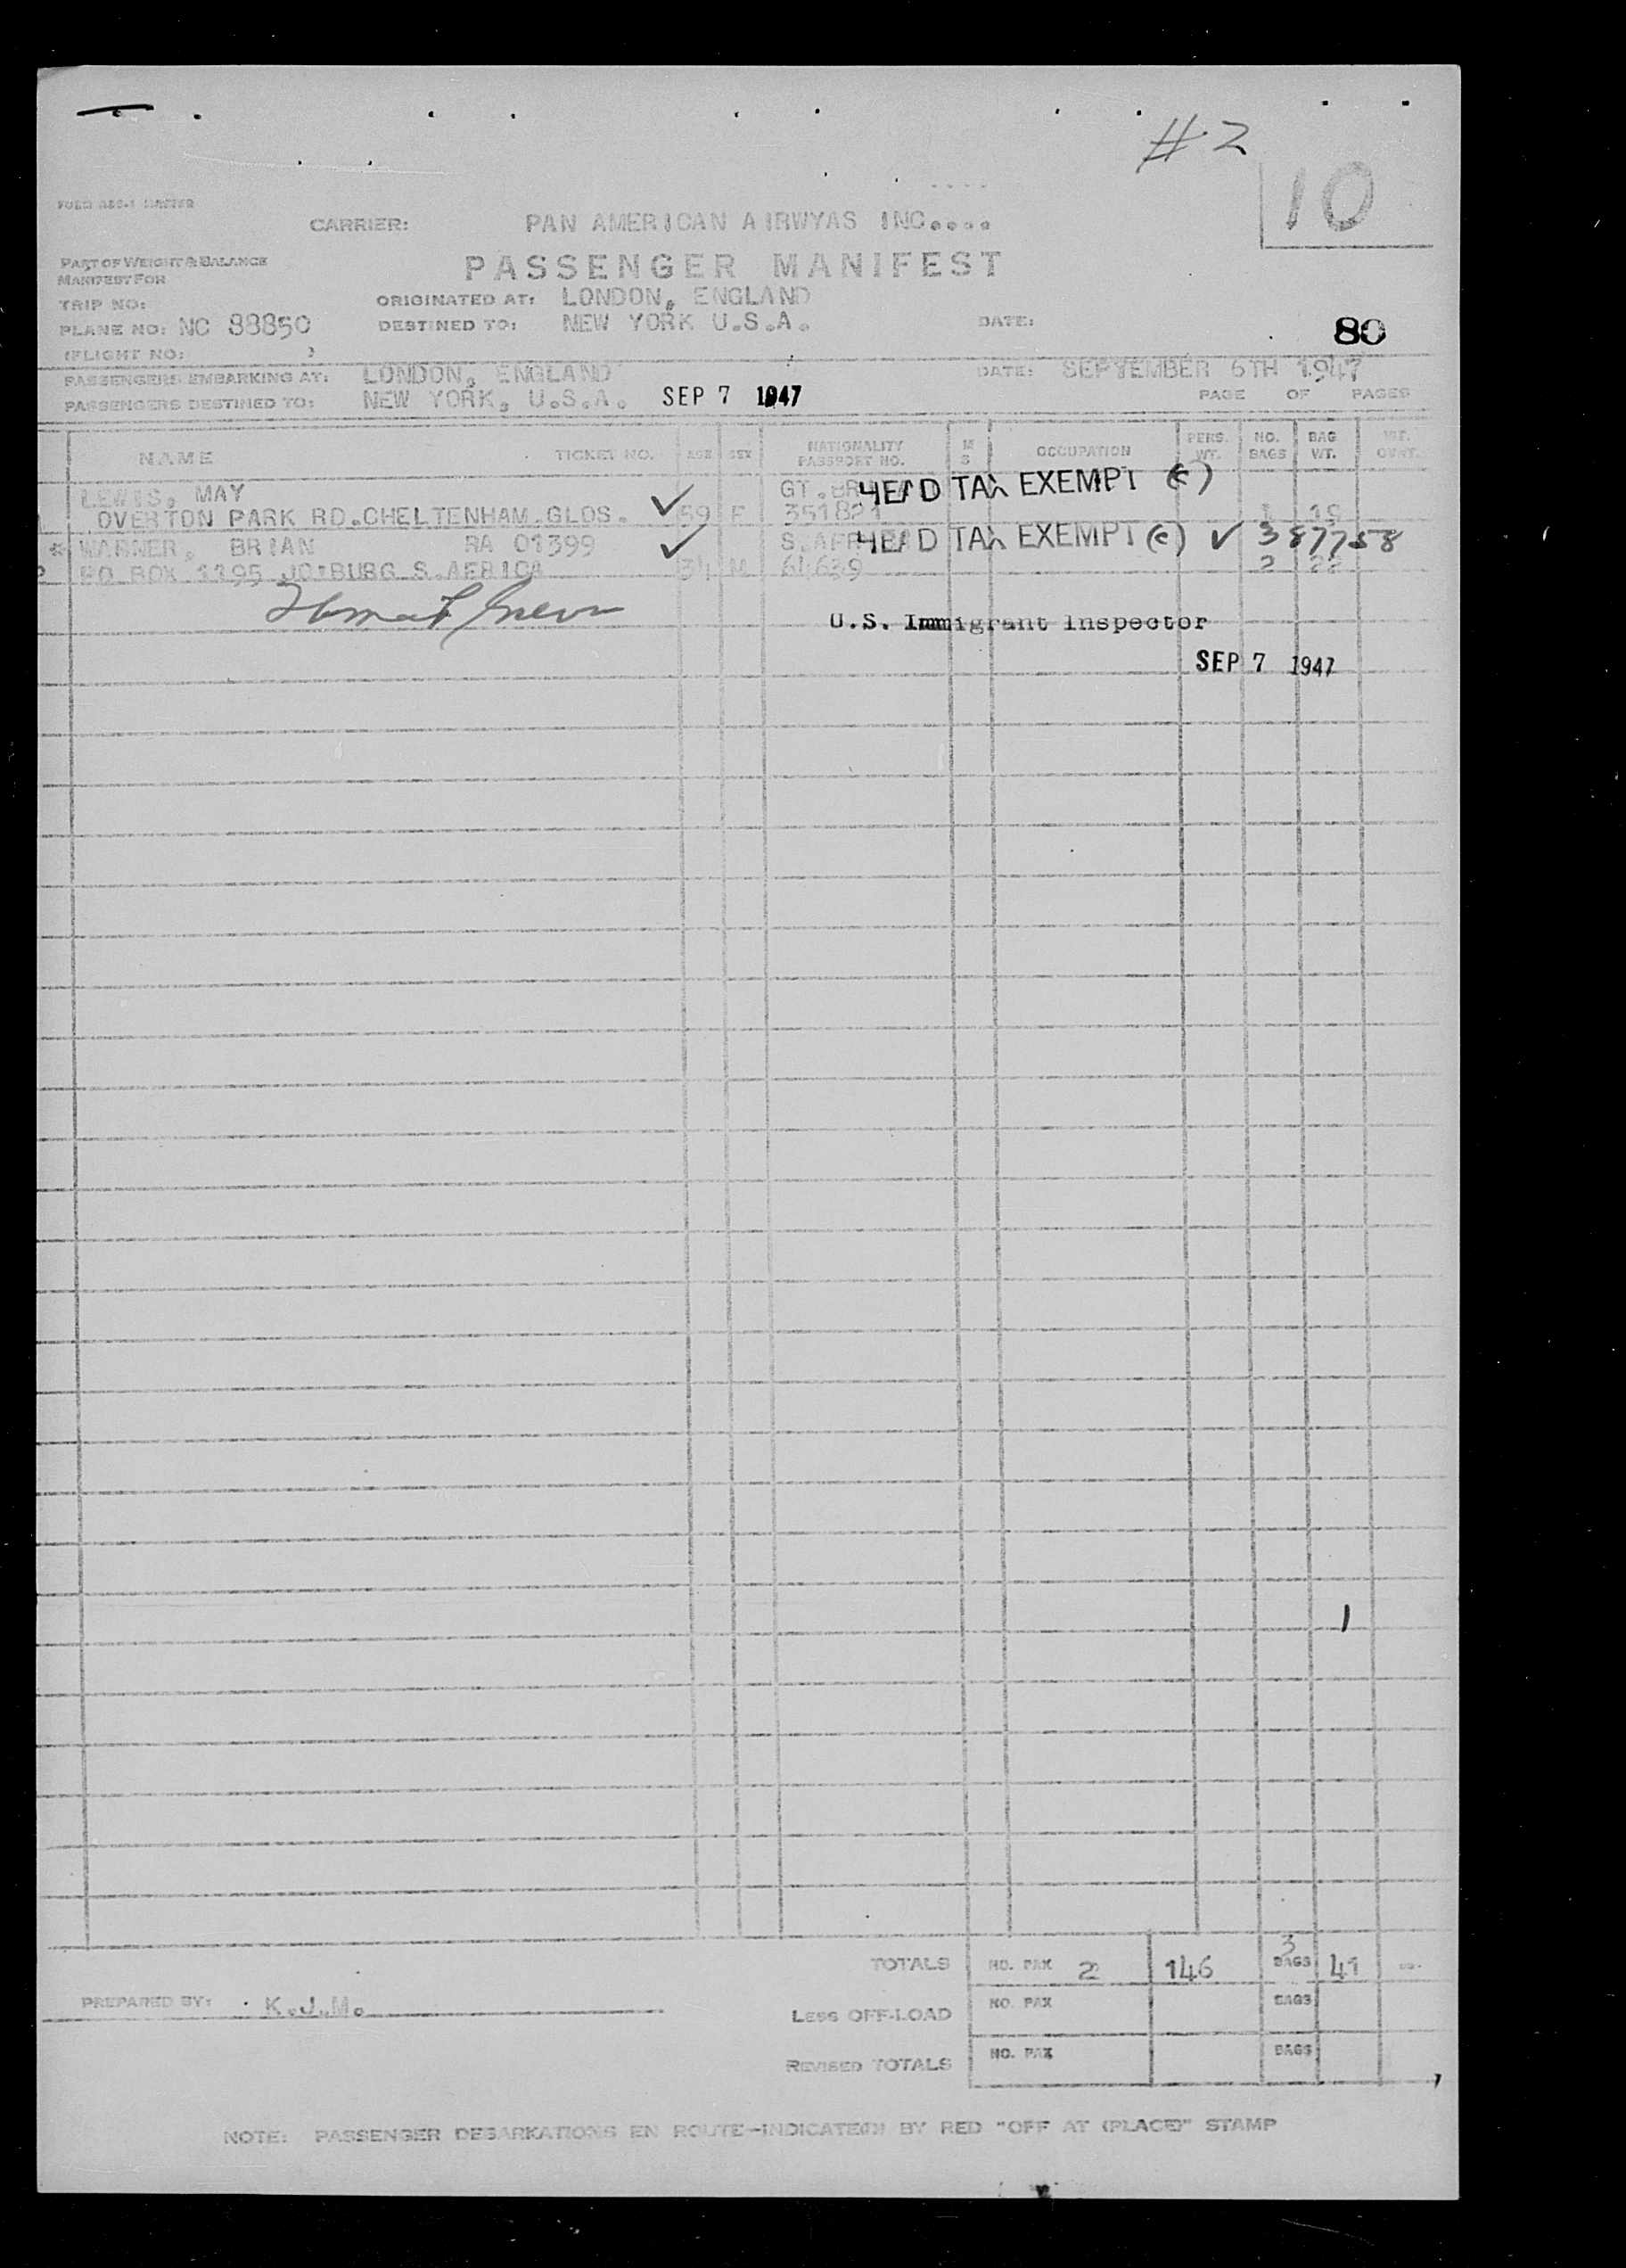 #2
10
CARRIER: PAN AMERICAN AIRWYAS INC....
PART OF WEIGHT & BALANCE
MANIFEST FOR
PASSENGER MANIFEST
TRIP NO:
ORIGINATED AT: LONDON, ENGLAND
PLANE NO: NC 88850 DESTINED TO: NEW YORK U.S.A. DATE: 80
(FLIGHT NO:
PASSENGERS EMBARKING AT: LONDON, ENGLAND DATE: SEPTEMBER 6TH 1947
PASSENGERS DESTINED TO: NEW YORK, U.S.A. SEP 7 1947 PAGE OF PAGES
NAME TICKET NO. AGE SEX NATIONALITY PASSPORT NO. M S OCCUPATION PERS. WT. NO. BAGS BAG WT.
LEWIS, MAY GT. HEAD TAX EXEMPT (c)
OVERTON PARK RD.CHELTENHAM.GLOS. 59 F 351821 1 19
* WARNER, BRIAN RA 01399 S.AFR HEAD TAX EXEMPT (c) 387758
2 PO BOX 1195 JO'BURG S.AFRICA 34 M 61639 2 22
U.S. Immigrant Inspector
SEP 7 1947
TOTALS NO. PAX 2 146 3 BAGS 41
PREPARED BY: K.J.M.
LESS OFF-LOAD NO. PAX BAGS
REVISED TOTALS NO. PAX BAGS
NOTE: PASSENGER DEBARKATIONS EN ROUTE-INDICATE BY RED "OFF AT (PLACE)" STAMP